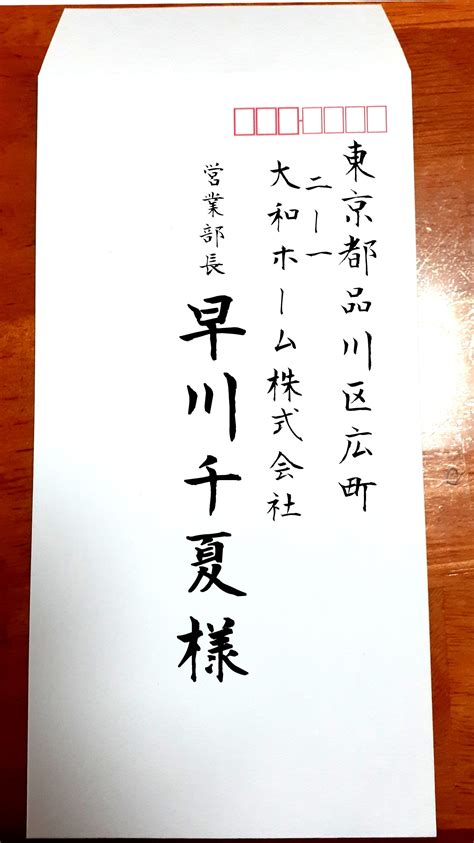 東京都品川区広町
二ー一
大和ホーム株式会社
営業部長
早川千夏様